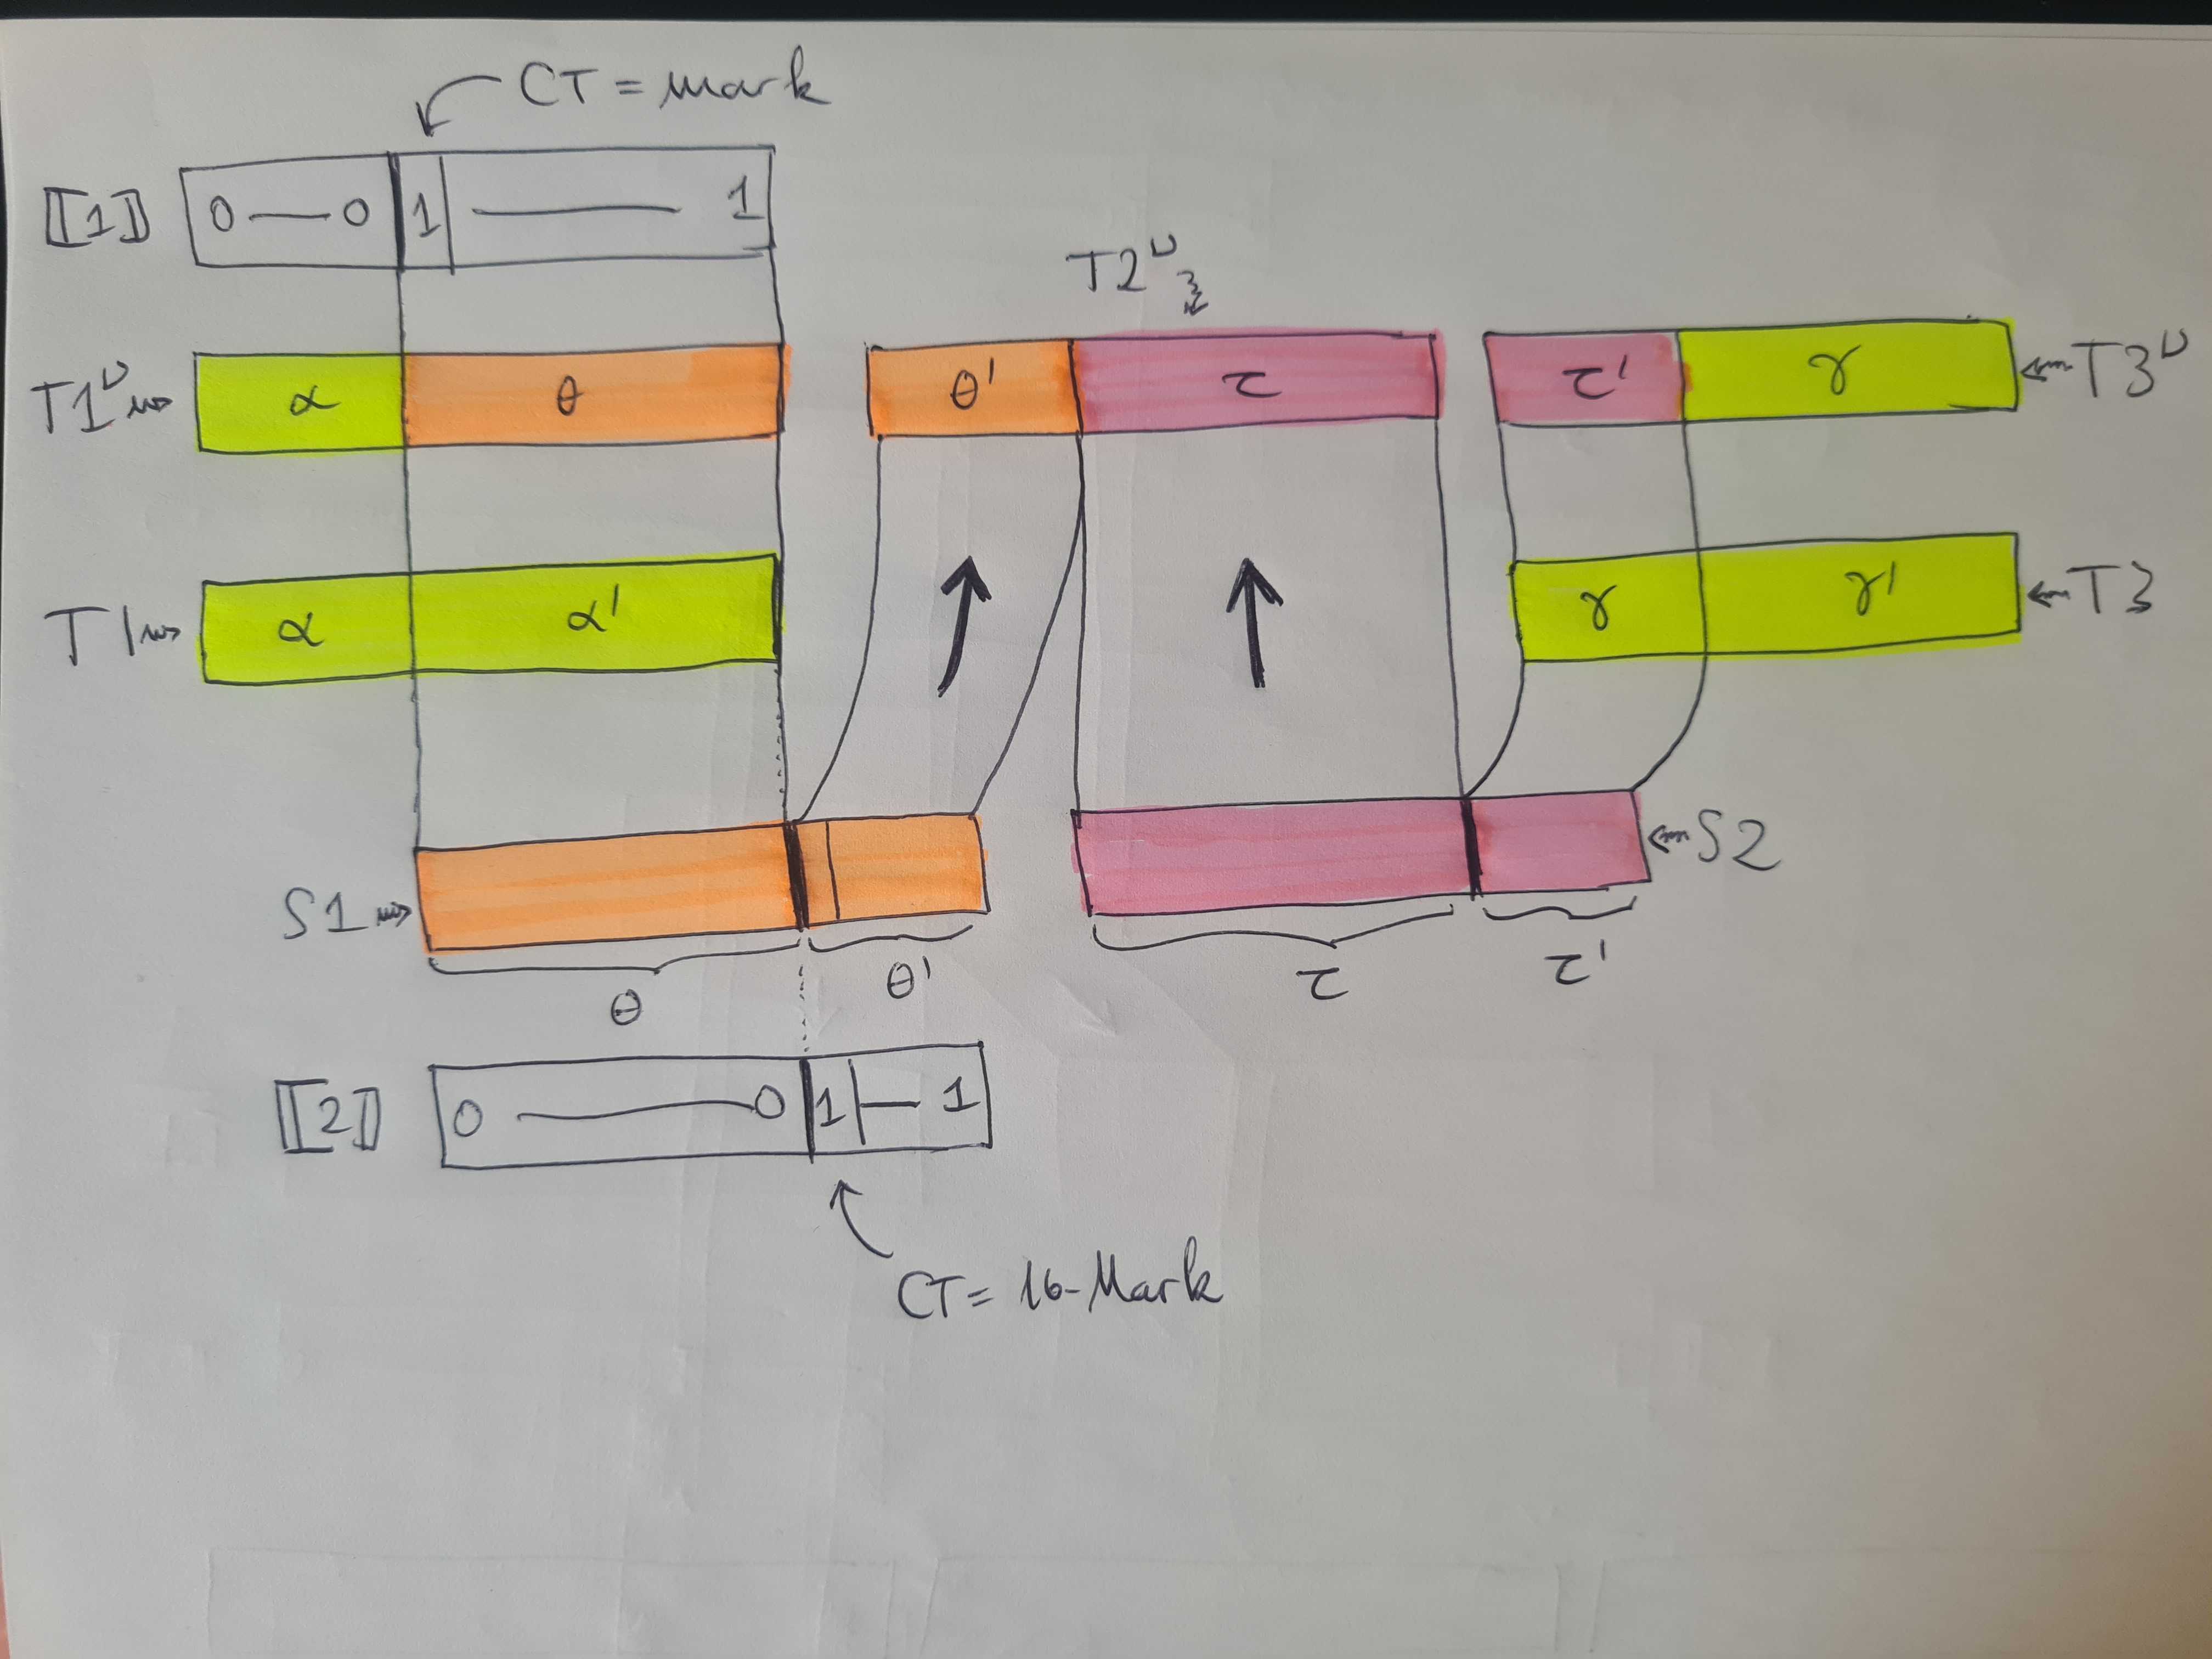 CT = mark
[[1]] 0 — 0 1 — 1
T2ᴜ
T1ᴜ α θ θ' τ τ' γ T3ᴜ
T1 α α' γ γ' T3
S1 S2
θ θ' τ τ'
[[2]] 0 — 0 1 — 1
CT = 16-Mark